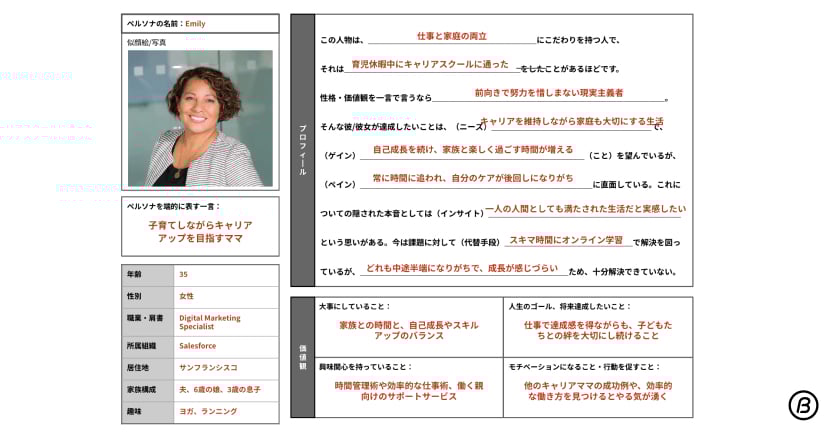 ペルソナの名前：Emily
似顔絵/写真
ペルソナを端的に表す一言：
子育てしながらキャリア
アップを目指すママ
年齢 35
性別 女性
職業・肩書 Digital Marketing
Specialist
所属組織 Salesforce
居住地 サンフランシスコ
家族構成 夫、6歳の娘、3歳の息子
趣味 ヨガ、ランニング
プロフィール
この人物は、仕事と家庭の両立にこだわりを持つ人で、
それは育児休暇中にキャリアスクールに通ったをしたことがあるほどです。
性格・価値観を一言で言うなら前向きで努力を惜しまない現実主義者。
そんな彼/彼女が達成したいことは、（ニーズ）キャリアを維持しながら家庭も大切にする生活で、
（ゲイン）自己成長を続け、家族と楽しく過ごす時間が増える（こと）を望んでいるが、
（ペイン）常に時間に追われ、自分のケアが後回しになりがちに直面している。これに
ついての隠された本音としては（インサイト）一人の人間としても満たされた生活だと実感したい
という思いがある。今は課題に対して（代替手段）スキマ時間にオンライン学習で解決を図っ
ているが、どれも中途半端になりがちで、成長が感じづらいため、十分解決できていない。
価値観
大事にしていること：
家族との時間と、自己成長やスキル
アップのバランス
人生のゴール、将来達成したいこと：
仕事で達成感を得ながらも、子どもた
ちとの絆を大切にし続けること
興味関心を持っていること：
時間管理術や効率的な仕事術、働く親
向けのサポートサービス
モチベーションになること・行動を促すこと：
他のキャリアママの成功例や、効率的
な働き方を見つけるとやる気が湧く